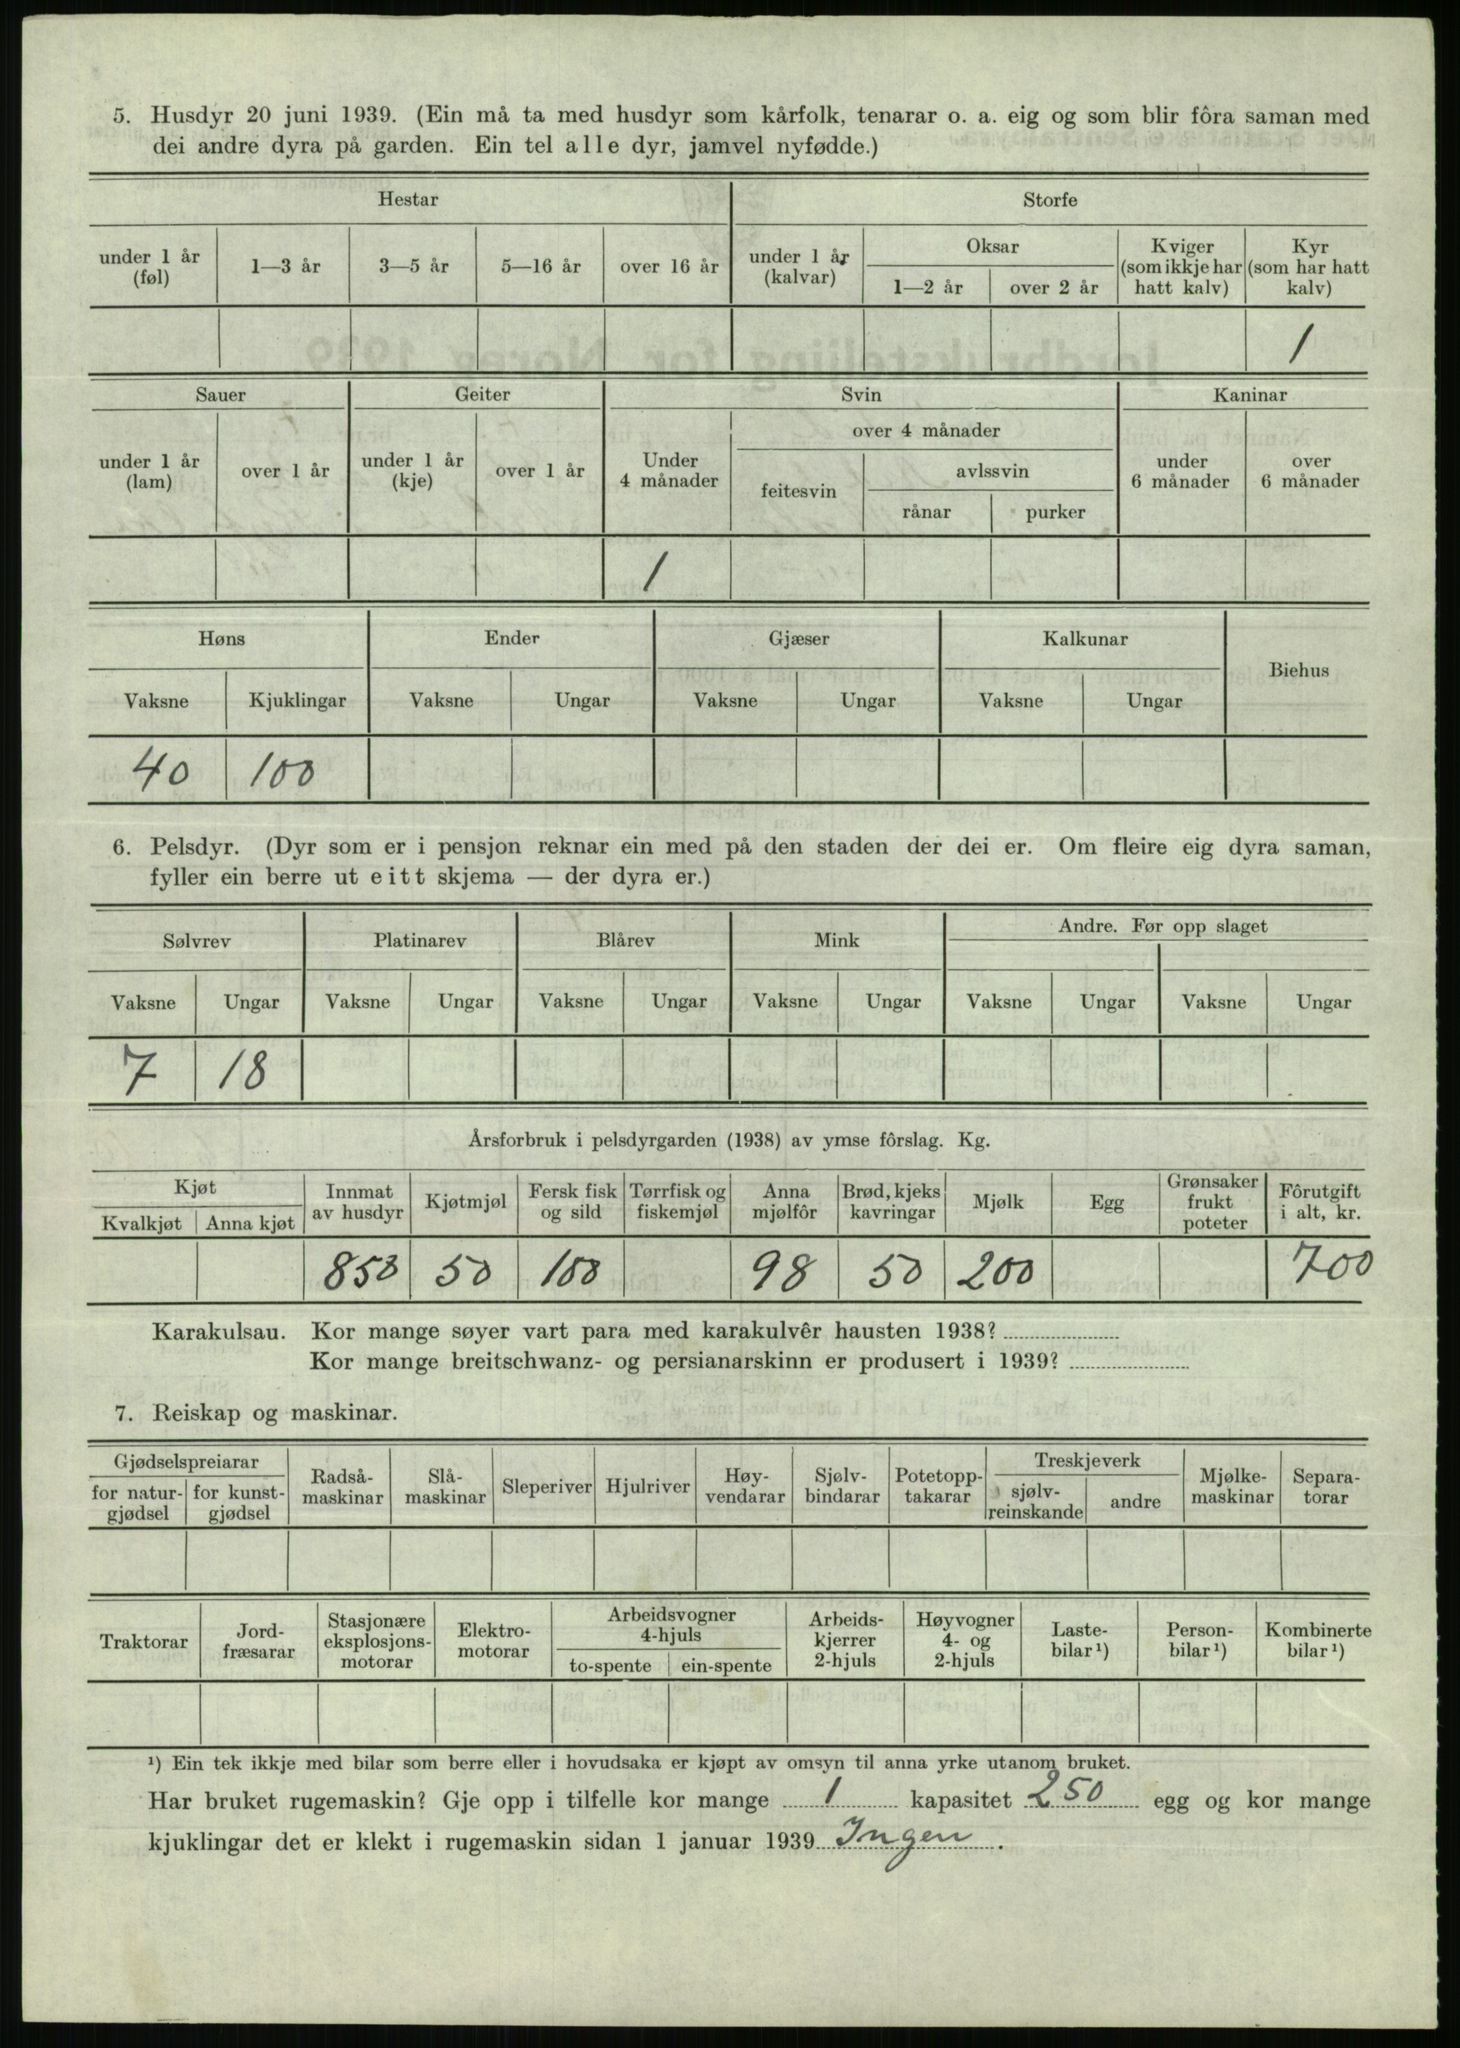 5. Husdyr 20 juni 1939. (Ein må ta med husdyr som kårfolk, tenarar o. a. eig og som blir fôra saman med
dei andre dyra på garden. Ein tel alle dyr, jamvel nyfødde.)
Hestar Storfe
under 1 år (føl) 1—3 år 3—5 år 5—16 år over 16 år under 1 år (kalvar) Oksar 1—2 år over 2 år Kviger (som ikkje har hatt kalv) Kyr (som har hatt kalv)
1
Sauer Geiter Svin Kaninar
under 1 år (lam) over 1 år under 1 år (kje) over 1 år Under 4 månader over 4 månader feitesvin avlssvin rånar purker under 6 månader over 6 månader
1
Høns Ender Gjæser Kalkunar Biehus
Vaksne Kjuklingar Vaksne Ungar Vaksne Ungar Vaksne Ungar
40 100
6. Pelsdyr. (Dyr som er i pensjon reknar ein med på den staden der dei er. Om fleire eig dyra saman,
fyller ein berre ut eitt skjema — der dyra er.)
Sølvrev Platinarev Blårev Mink Andre. Før opp slaget
Vaksne Ungar Vaksne Ungar Vaksne Ungar Vaksne Ungar Vaksne Ungar Vaksne Ungar
7 18
Årsforbruk i pelsdyrgarden (1938) av ymse fôrslag. Kg.
Kjøt Kvalkjøt Anna kjøt Innmat av husdyr Kjøtmjøl Fersk fisk og sild Tørrfisk og fiskemjøl Anna mjølfôr Brød, kjeks kavringar Mjølk Egg Grønsaker frukt poteter Fôrutgift i alt, kr.
850 50 100 98 50 200 700
Karakulsau. Kor mange søyer vart para med karakulvêr hausten 1938?
Kor mange breitschwanz- og persianarskinn er produsert i 1939?
7. Reiskap og maskinar.
Gjødselspreiarar for natur-gjødsel for kunst-gjødsel Radså-maskinar Slå-maskinar Sleperiver Hjulriver Høy-vendarar Sjølv-bindarar Potetopp-takarar Treskjeverk sjølv-reinskande andre Mjølke-maskinar Separa-torar
Traktorar Jord-fræsarar Stasjonære eksplosjons-motorar Elektro-motorar Arbeidsvogner 4-hjuls to-spente ein-spente Arbeids-kjerrer 2-hjuls Høyvogner 4- og 2-hjuls Laste-bilar ¹) Person-bilar ¹) Kombinerte bilar ¹)
¹) Ein tek ikkje med bilar som berre eller i hovudsaka er kjøpt av omsyn til anna yrke utanom bruket.
Har bruket rugemaskin? Gje opp i tilfelle kor mange 1 kapasitet 250 egg og kor mange
kjuklingar det er klekt i rugemaskin sidan 1 januar 1939 Ingen .